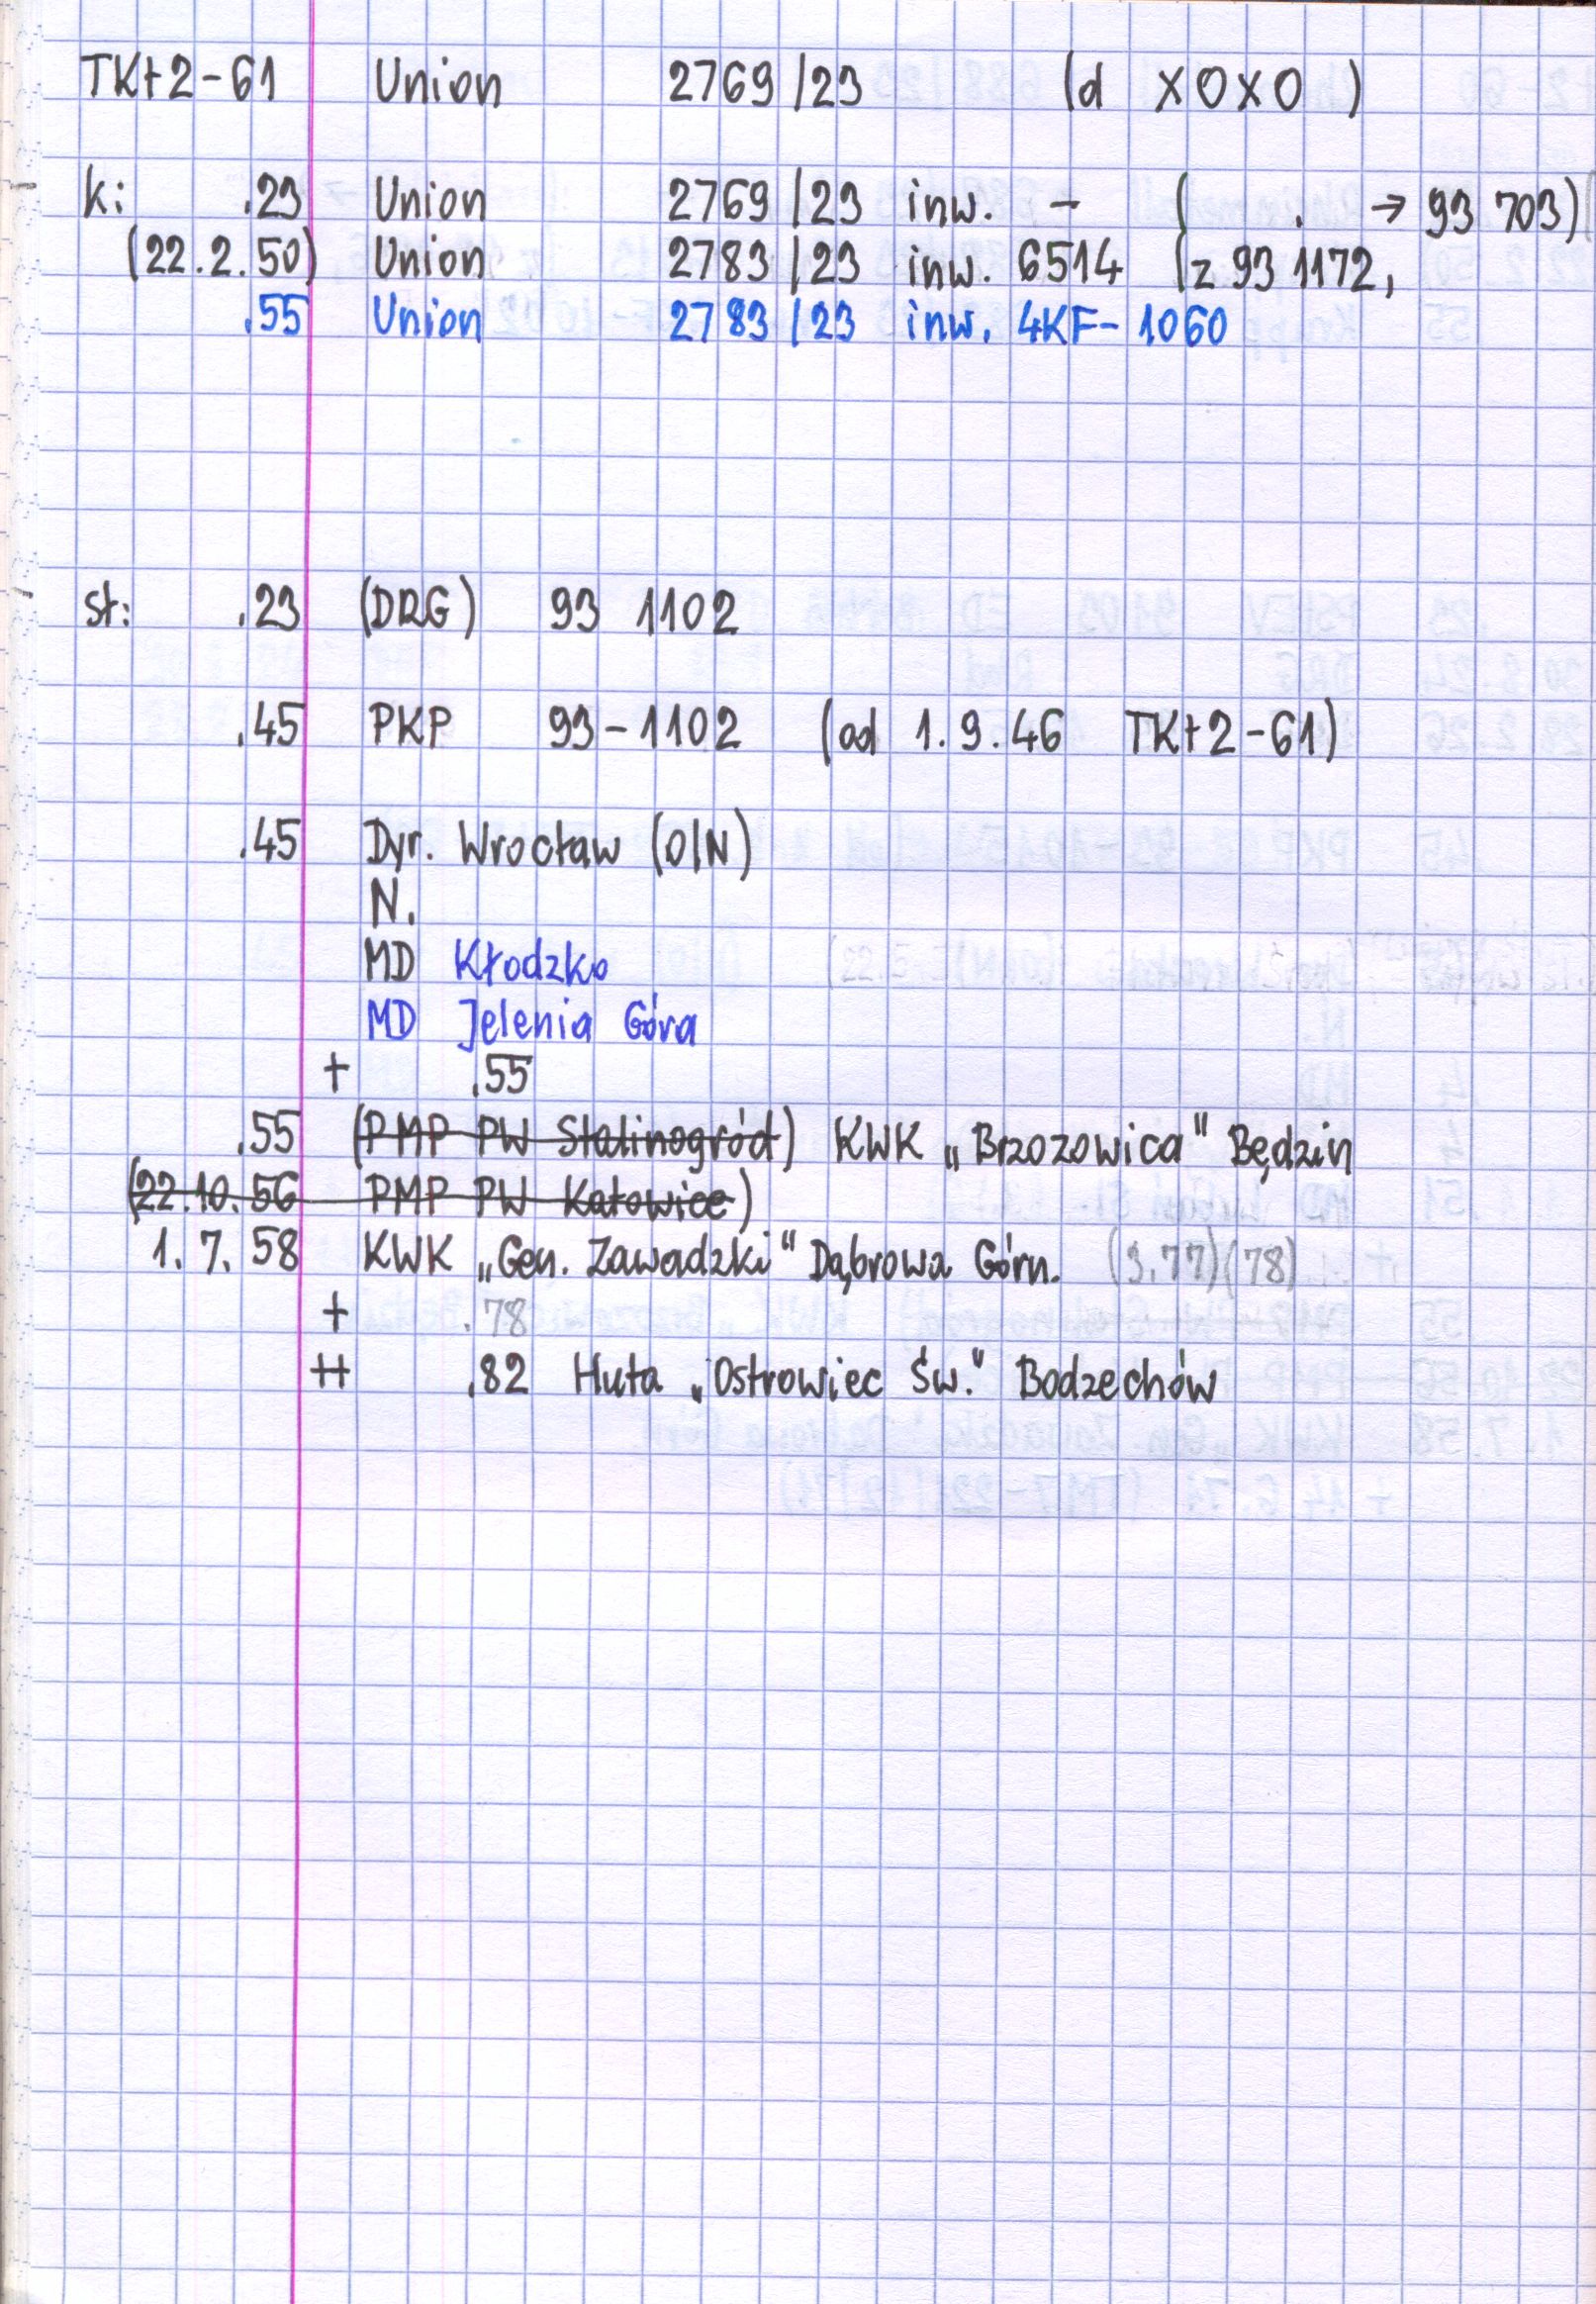 TKt2-61 Union 2769/23 (d XOXO )
k: .23 Union 2769/23 inw. – ( . → 93 703)
(22.2.50) Union 2783/23 inw. 6514 (z 93 1172,
.55 Union 2783/23 inw. 4KF-1060
st: .23 (DRG) 93 1102
.45 PKP 93-1102 (od 1.9.46 TKt2-61)
.45 Dyr. Wrocław (OIN)
N.
MD Kłodzko
MD Jelenia Góra
+ .55
.55 (PMP PW Stalinogród) KWK „Brzozowica" Będzin
(22.10.56 PMP PW Katowice)
1.7.58 KWK „Gen. Zawadzki" Dąbrowa Górn. (3.77)(78)
+ .78
++ .82 Huta „Ostrowiec Św." Bodzechów